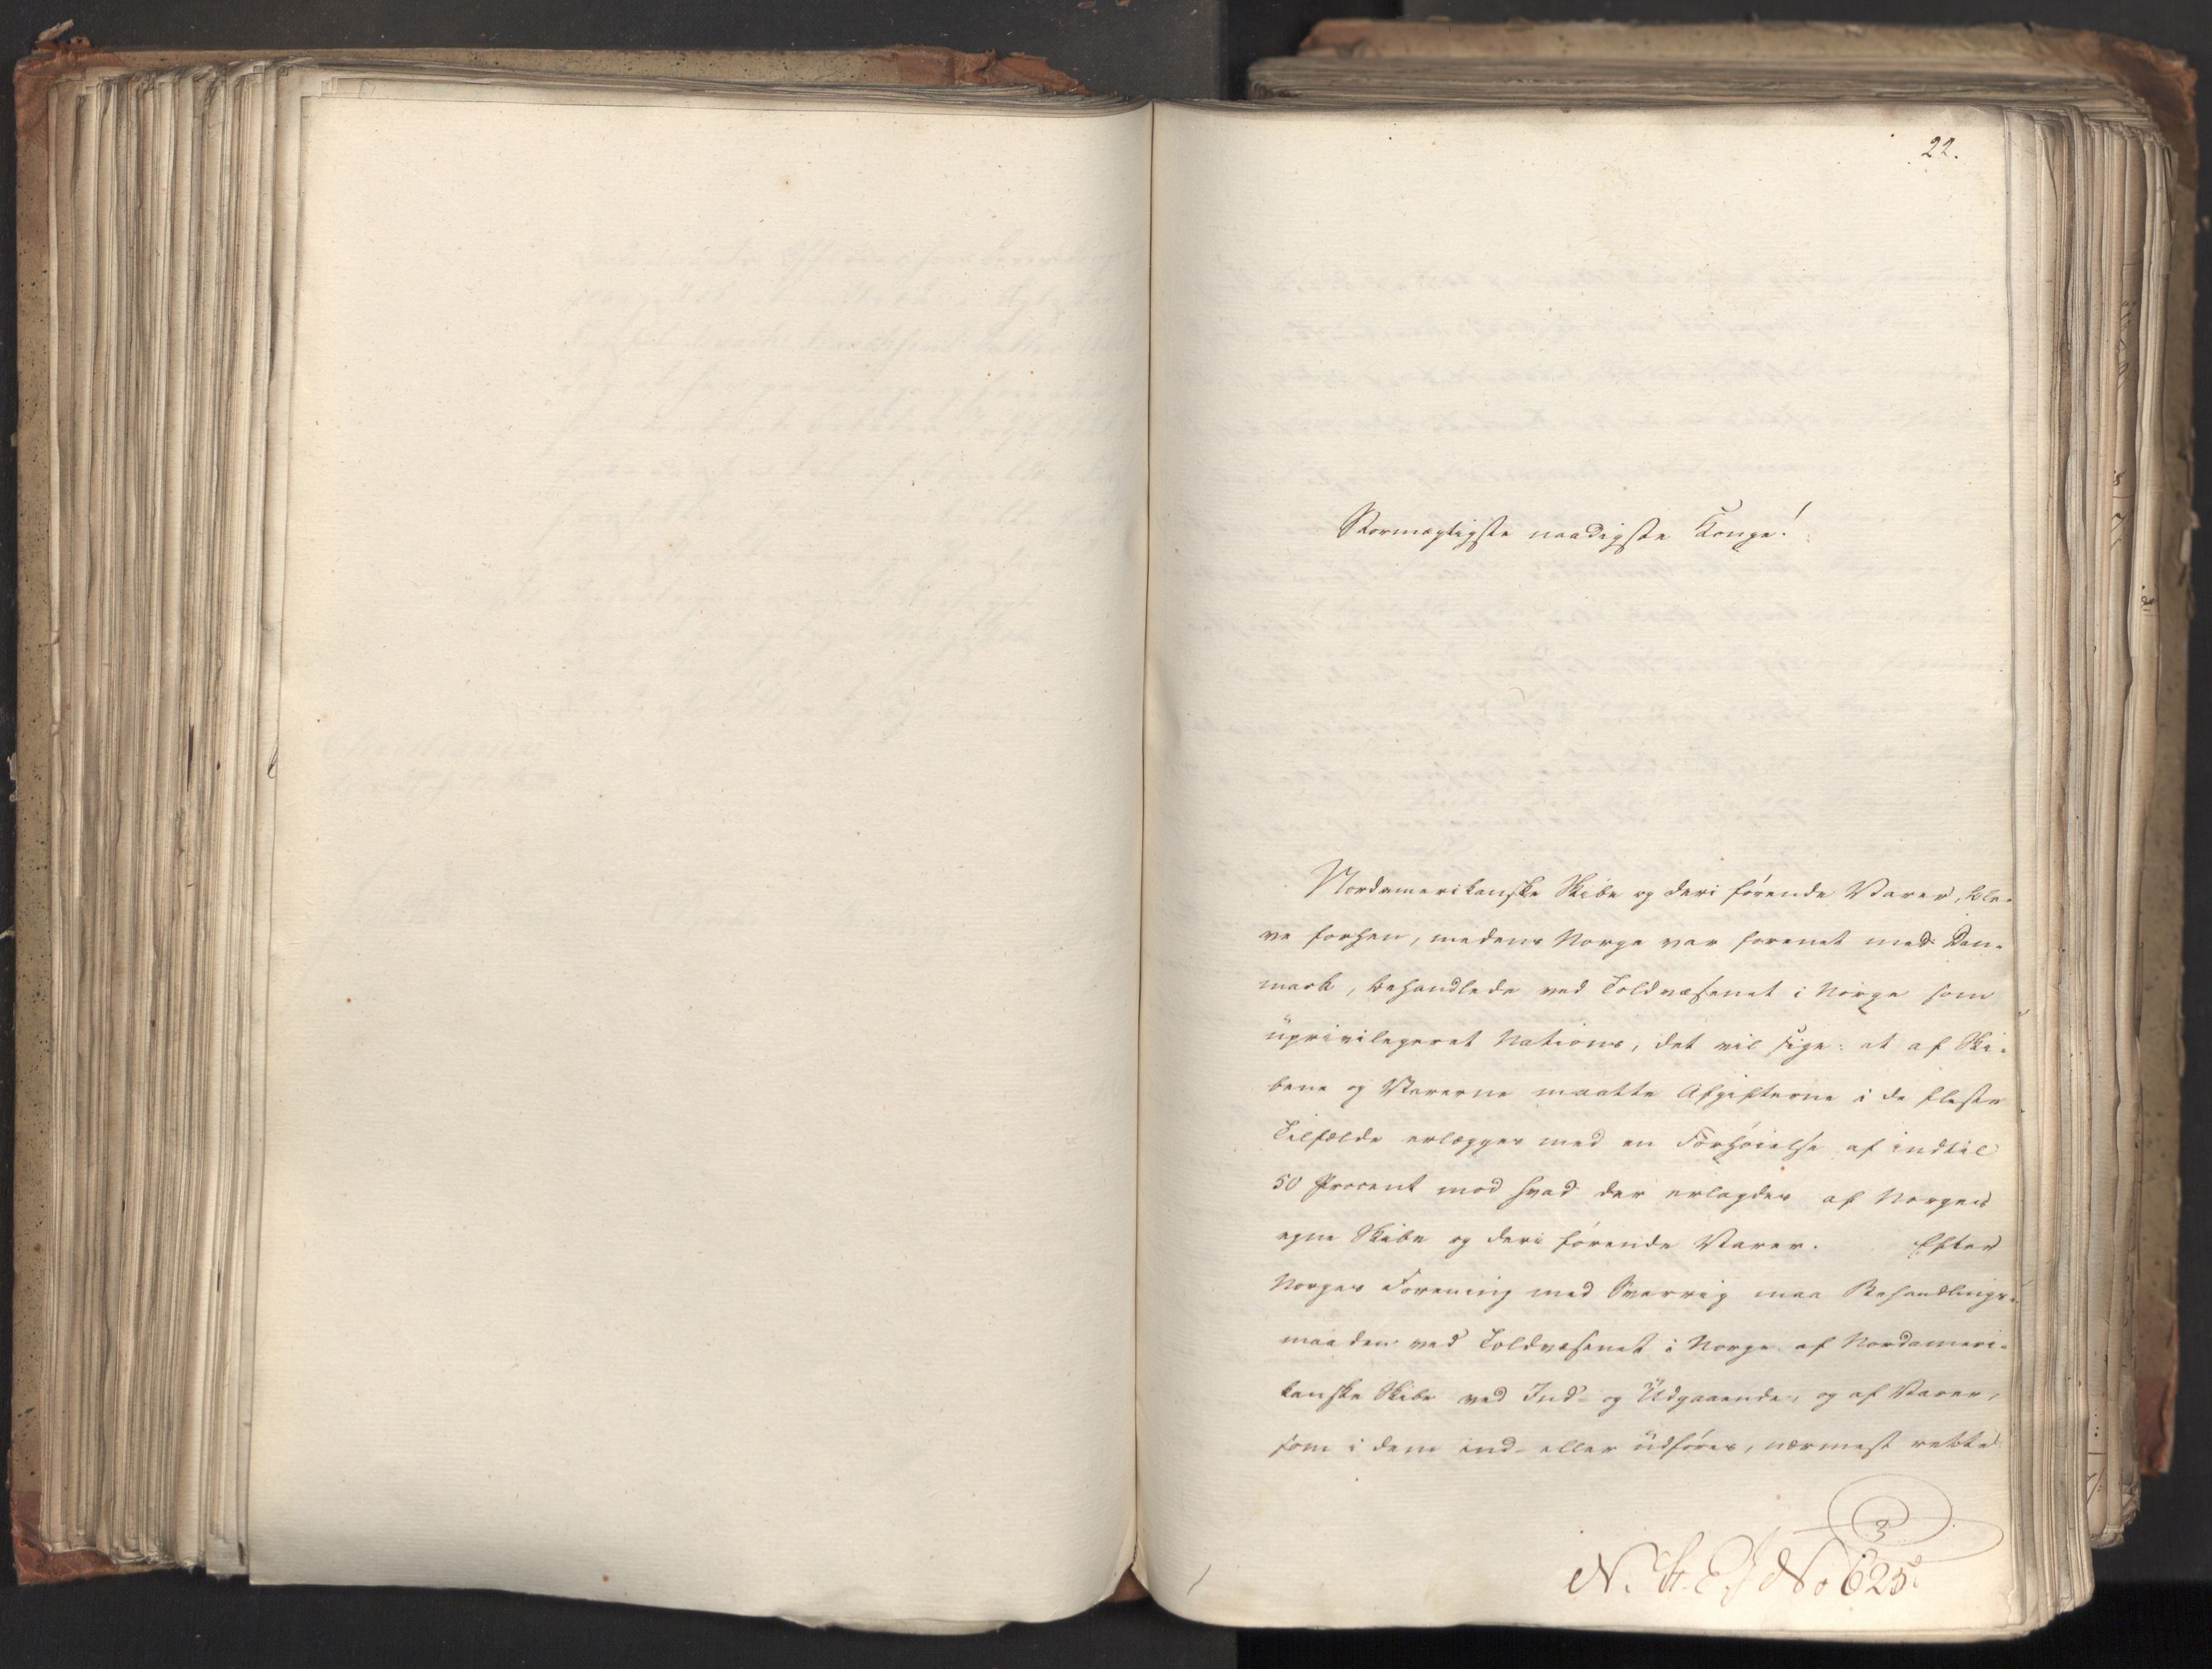 22.
Stormægtigste naadigste Konge!
Nordamerikanske Skibe og deri førende Varer, ble-
ve forhen, medens Norge var forenet med Dan-
mark, behandlede ved Toldvæsenet i Norge som
üprivilegeret Nations, det vil sige: at af Ski-
bene og Varerne maatte Afgifterne i de fleste
Tilfælde erlægges med en Forhøielse af indtil
50 Procent mod hvad der erlagdes af Norges
egne Skibe og deri førende Varer. Efter
Norges Forening med Sverrig maa Behandlings-
maaden ved Toldvæsenet i Norge af Nordameri-
kanske Skibe ved Ind- og Üdgaaende, og af Varer,
som i dem ind- eller üdføres, nærmest rette
3
No 625.